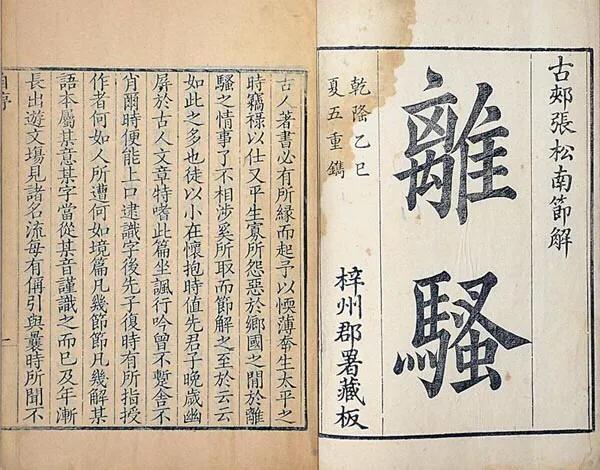 古郟張松南節解
離騷
乾隆乙巳
夏五重鐫
梓州郡署藏板
古人著書必有所緣而起予以愞薄奉生太平之
時竊祿以仕又平生寡所怨惡於鄉國之閒於離
騷之情事了不相涉奚所取而節解之至於云云
如此之多也徒以小在懷抱時值先君子晚歲幽
屏於古人文章特嗜此篇坐諷行吟曾不蹔舍不
肖爾時便能上口逮識字後先子復時有所指授
作者何如人所遭何如境篇凡幾節節凡幾解某
語本屬某意某字當從某音謹識之而已及年漸
長出遊文場見諸名流每有稱引與曩時所聞不
一